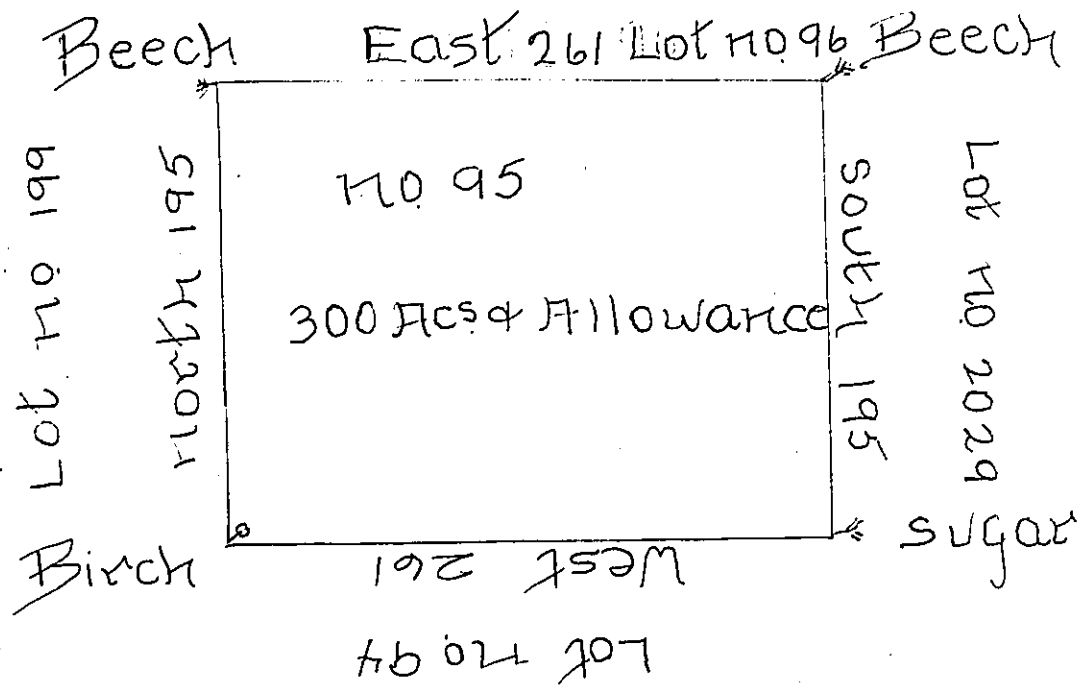 Beech East 261 Lot no 96 Beech
Lot no 199
North 195
no 95
300 Acs & Allowance
South 195
Lot no 2029
Birch
West 261
Sugar
Lot no 94